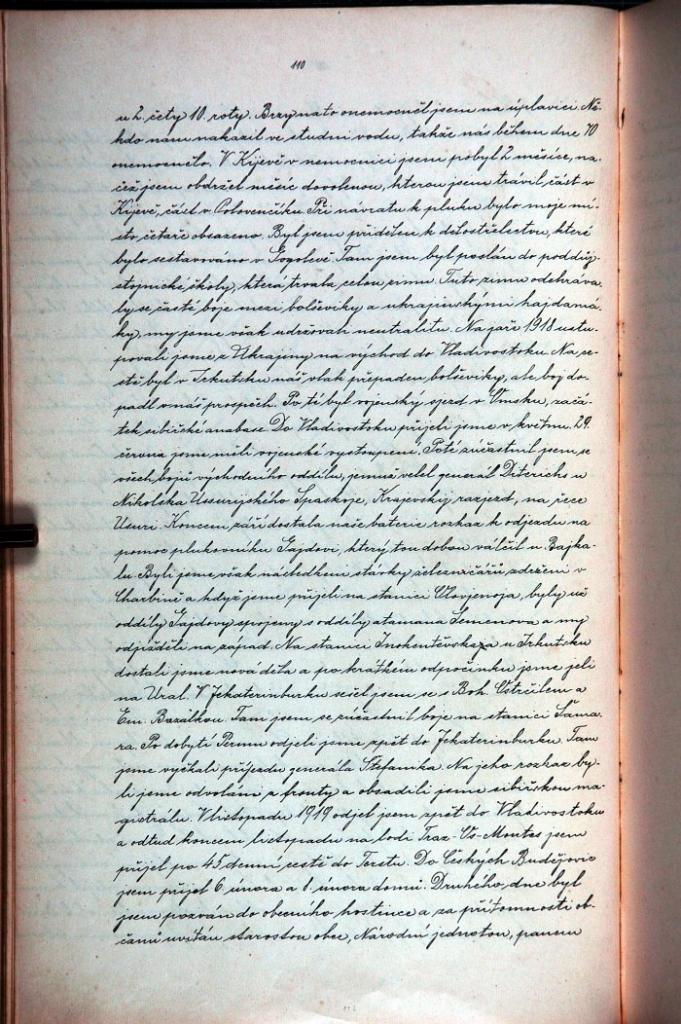 110
u 2. čety 10. roty. Brzy nato onemocněl jsem na úplavici. Ně-
kdo nám nakazil ve studni vodu, takže nás během dne 70
onemocnělo. V Kijevě v nemocnici jsem pobyl 2 měsíce, na-
čež jsem obdržel měsíc dovolenou, kterou jsem trávil, část v
Kijevě, část v Polovenčíku. Při návratu k pluku bylo moje mí-
sto, četaře obsazeno. Byl jsem přidělen k dělostřelectvu, které
bylo sestavováno v Gogolevě. Tam jsem byl poslán do poddůj-
stojnické školy, která trvala celou zimu. Tuto zimu odehráva-
ly se, časté boje mezi bolševiky a ukrajinskými hajdamá-
ky, my jsme však udržovali neutralitu. Na jaře 1918 ustu-
povali jsme z Ukrajiny na východ do Vladivostoku. Na ce-
stě byl v Irkutsku náš vlak přepaden bolševiky, ale boj do-
padl v náš prospěch. Po té byl vojenský sjezd v Omsku, začá-
tek sibiřské anabase. Do Vladivostoku přijeli jsme v květnu. 29.
června jsme měli vojenské vystoupení. Poté zúčastnil jsem se
všech bojů východního oddílu, jemuž velel generál Diterichs u
Nikolska Ussurijského Spaskoje, Krajevskij razjezd, na řece
Usuri. Koncem září dostala naše baterie rozkaz k odjezdu na
pomoc plukovníku Gajdovi, který tou dobou válčil u Bajka-
lu. Byli jsme však následkem stávky železničářů zdrženi v
Charbině a když jsme přijeli na stanici Olovjenoja, byly už
oddíly Gajdovy spojeny s oddíly atamana Semenova a my
odjížděli na západ. Na stanici Inokentěvskaja u Irkutsku
dostali jsme nová děla a po krátkém odpočinku jsme jeli
na Ural. V Jekaterinburku sešel jsem se s Boh. Ostrčilem a
Em. Bazalkou. Tam jsem se zúčastnil boje na stanici Šama-
ra. Po dobytí Permu odjeli jsme zpět do Jekaterinburku. Tam
jsme vyčkali příjezdu generála Štefanika. Na jeho rozkaz by-
li jsme odvoláni z fronty a obsadili jsme sibiřskou ma-
gistrálu. V listopadu 1919 odjel jsem zpět do Vladivostoku
a odtud koncem listopadu na lodi Traz-Os-Montes jsem
přijel po 45 denní cestě do Terstu. Do Českých Budějovic
jsem přijel 6. února a 8. února domů. Druhého, dne byl
jsem pozván do obecního hostince a za přítomnosti ob-
čanů uvítán starostou obce, Národní jednotou, panem